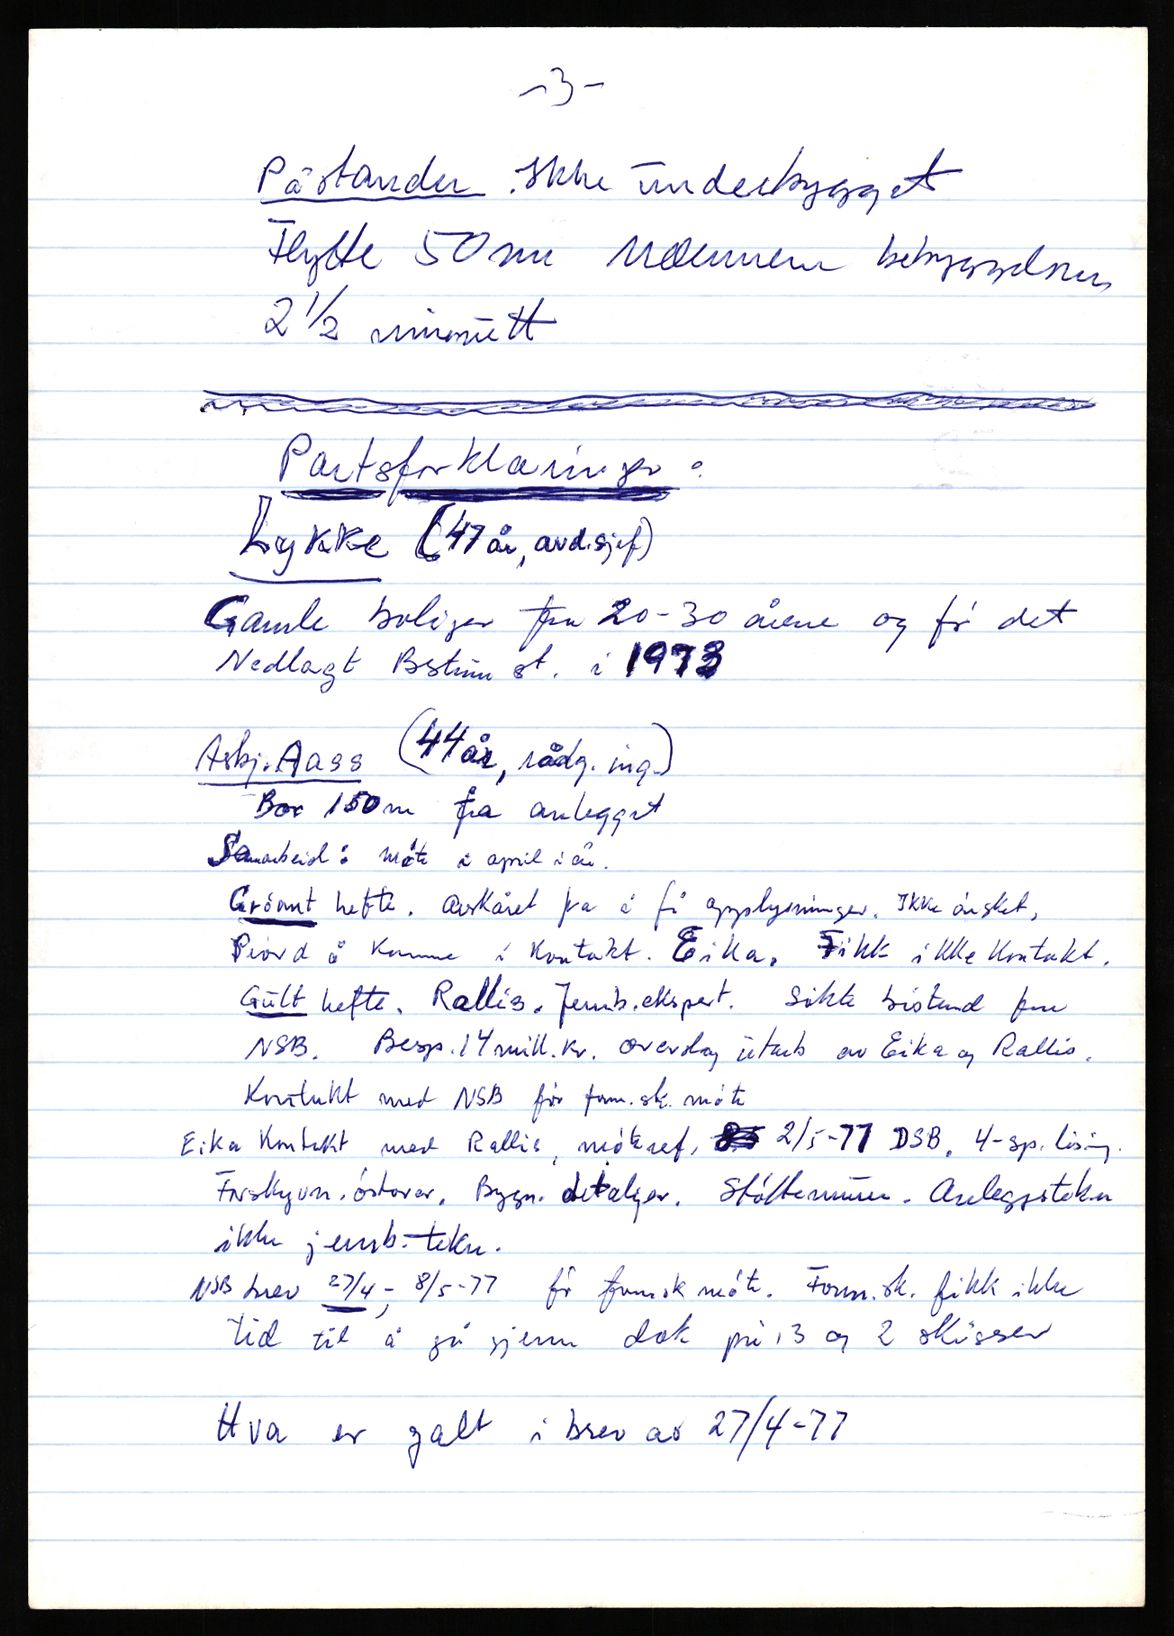 -3-
Påstander ikke underbygget
Flytte 50 m nærmere bebyggelsen
2 1/2 minutt
Partsforklaringer:
Lykke (47 år, avd.sjef)
Gamle boliger fra 20-30 årene og før det
Nedlagt Bestum st. i 1973
Asbj. Aass (44 år, rådg. ing.)
Bor 150 m fra anlegget
Samarbeid: møte i april i år.
Grønt hefte. Avskåret fra å få opplysninger. Ikke ønsket.
Prøvd å komme i kontakt. Eika. Fikk ikke kontakt.
Gult hefte. Rallis. Jernb.ekspert. Søkte bistand fra
NSB. Besp. 14 mill. kr. overslag utarb av Eika og Rallis.
Kontakt med NSB før form.sk. møte
Eika kontakt med Rallis, møteref. 2/5-77 DSB. 4-sp. løsing.
Forskyvn. østover. Bygn. detaljer. Støttemurer. Anleggstekn
ikke jernb.-tekn.
NSB brev 27/4-, 8/5-77 før formsk møte. Form.sk. fikk ikke
tid til å gå gjenn dok på 13 og 2 skisser
Hva er galt i brev av 27/4-77